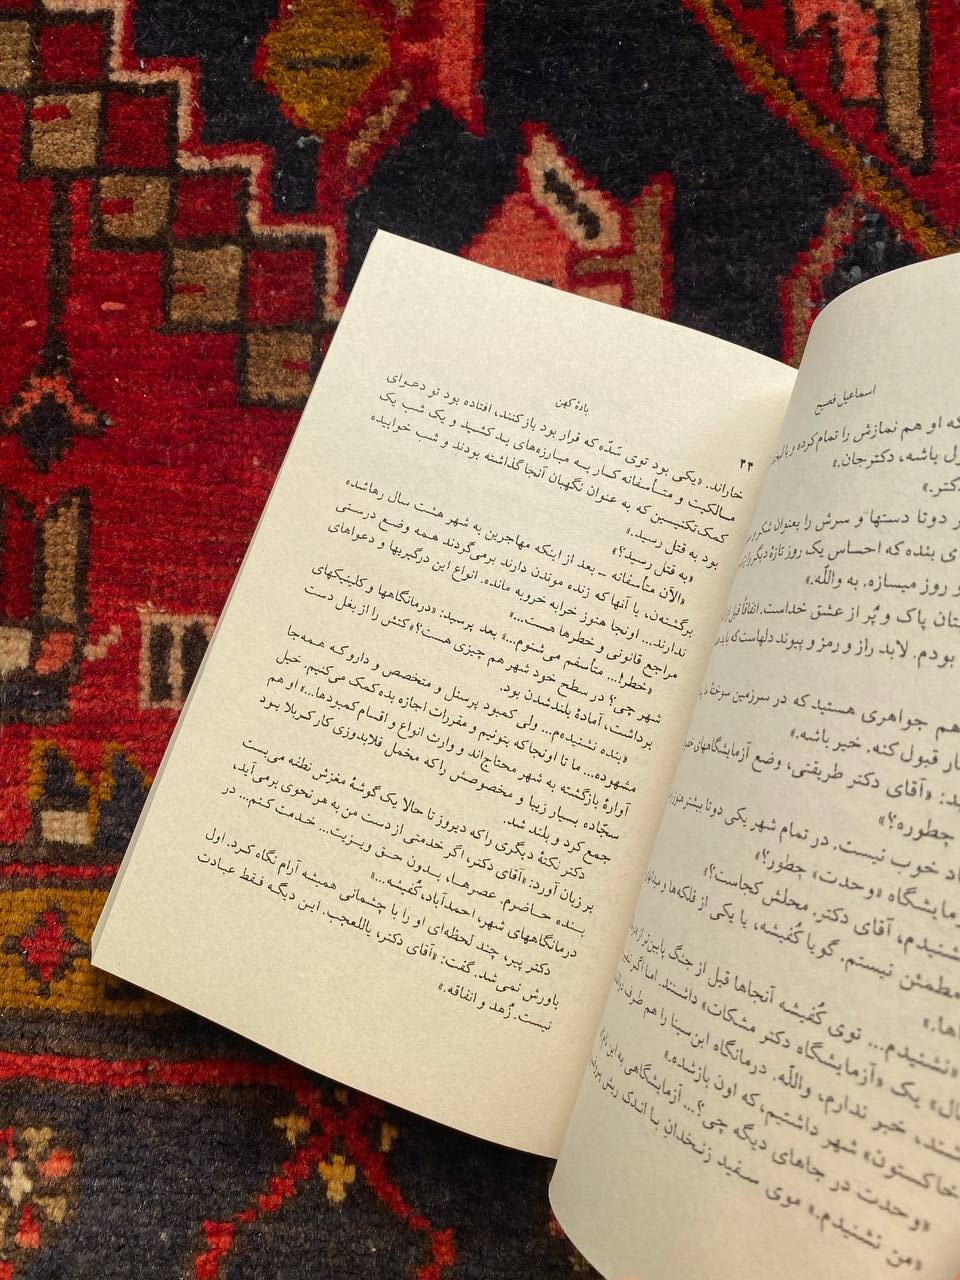 بادهٔ کهن
۴۴
خاراند. «یکی بود توی سَدّه که قرار بود باز کنند، افتاده بود تو دعوای
مالکیت و متأسفانه کار به مبارزه‌های بد کشید و یک شب یک
کمک‌تکنیسین که به عنوان نگهبان آنجا گذاشته بودند و شب خوابیده
بود به قتل رسید.»
«به قتل رسید؟»
«الآن متأسفانه ـ بعد از اینکه مهاجرین به شهر هشت سال رهاشده
برگشته‌ن، یا آنها که زنده موندن دارند برمی‌گردند همه وضع درستی
ندارند... اونجا هنوز خرابه خروبه مانده. انواع این درگیریها و دعواهای
مراجع قانونی و خطرها هست...»
«خطر!... متأسفم می‌شنوم...» بعد پرسید: «درمانگاهها و کلینیکهای
شهر چی؟ در سطح خود شهر هم چیزی هست؟» کتش را از بغل دست
برداشت، آمادهٔ بلندشدن بود.
«بنده نشنیده‌م... ولی کمبود پرسنل و متخصص و دارو که همه‌جا
مشهوره... ما تا اونجا که بتونیم و مقررات اجازه بده کمک می‌کنیم. خیل
آوارهٔ بازگشته به شهر محتاج‌اند و وارث انواع و اقسام کمبودها...» او هم
سجّاده بسیار زیبا و مخصوصش را که مخمل قلابدوزی کار کربلا بود
جمع کرد و بلند شد.
دکتر نکتهٔ دیگری را که دیروز تا حالا یک گوشهٔ مغزش نطفه می‌بست
بر زبان آورد: «آقای دکتر، اگر خدمتی از دست من به هر نحوی برمی‌آید،
بنده حاضرم. عصرها، بدون حق ویزیت... خدمت کنم... در
درمانگاههای شهر، احمدآباد، کُفیشه...»
دکتر پیر، چند لحظه‌ای او را با چشمانی همیشه آرام نگاه کرد. اول
باورش نمی‌شد. گفت: «آقای دکتر، یاللعجب. این دیگه فقط عبادت
نیست. زُهد و انفاقه.»
اسماعیل فصیح
که او هم نمازش را تمام کرده و
باشه، دکترجان.»
دوتا دستها و سرش را بعنوان
بنده که احساس یک روز تازهٔ دیگر را
و روز میسازه. به واللّه.»
پاک و پُر از عشق خداست. اتفاقاً قبل از
بودم. لابد راز و رمز و پیوند دلهاست که
هم جواهری هستید که در سرزمین سوختهٔ
قبول کنه. خیر باشه.»
«آقای دکتر طریقتی، وضع آزمایشگاههای
چطوره؟»
خوب نیست. در تمام شهر یکی دوتا بیشتر
«وحدت» چطور؟»
آقای دکتر. محلش کجاست؟»
نیستم. گویا کُفیشه، یا یکی از فلکه‌ها و
«نشنیدم... توی کُفیشه آنجاها قبل از جنگ پایین‌تر از
یک «آزمایشگاه دکتر مشکات» داشتند. اما اگر
خبر ندارم، واللّه. درمانگاه ابن‌سینا را هم طرف
شهر داشتیم، که اون بازشده.»
«وحدت در جاهای دیگه چی؟... آزمایشگاهی به این
«من نشنیدم.» موی سفید زنخدانِ با اندک ریش